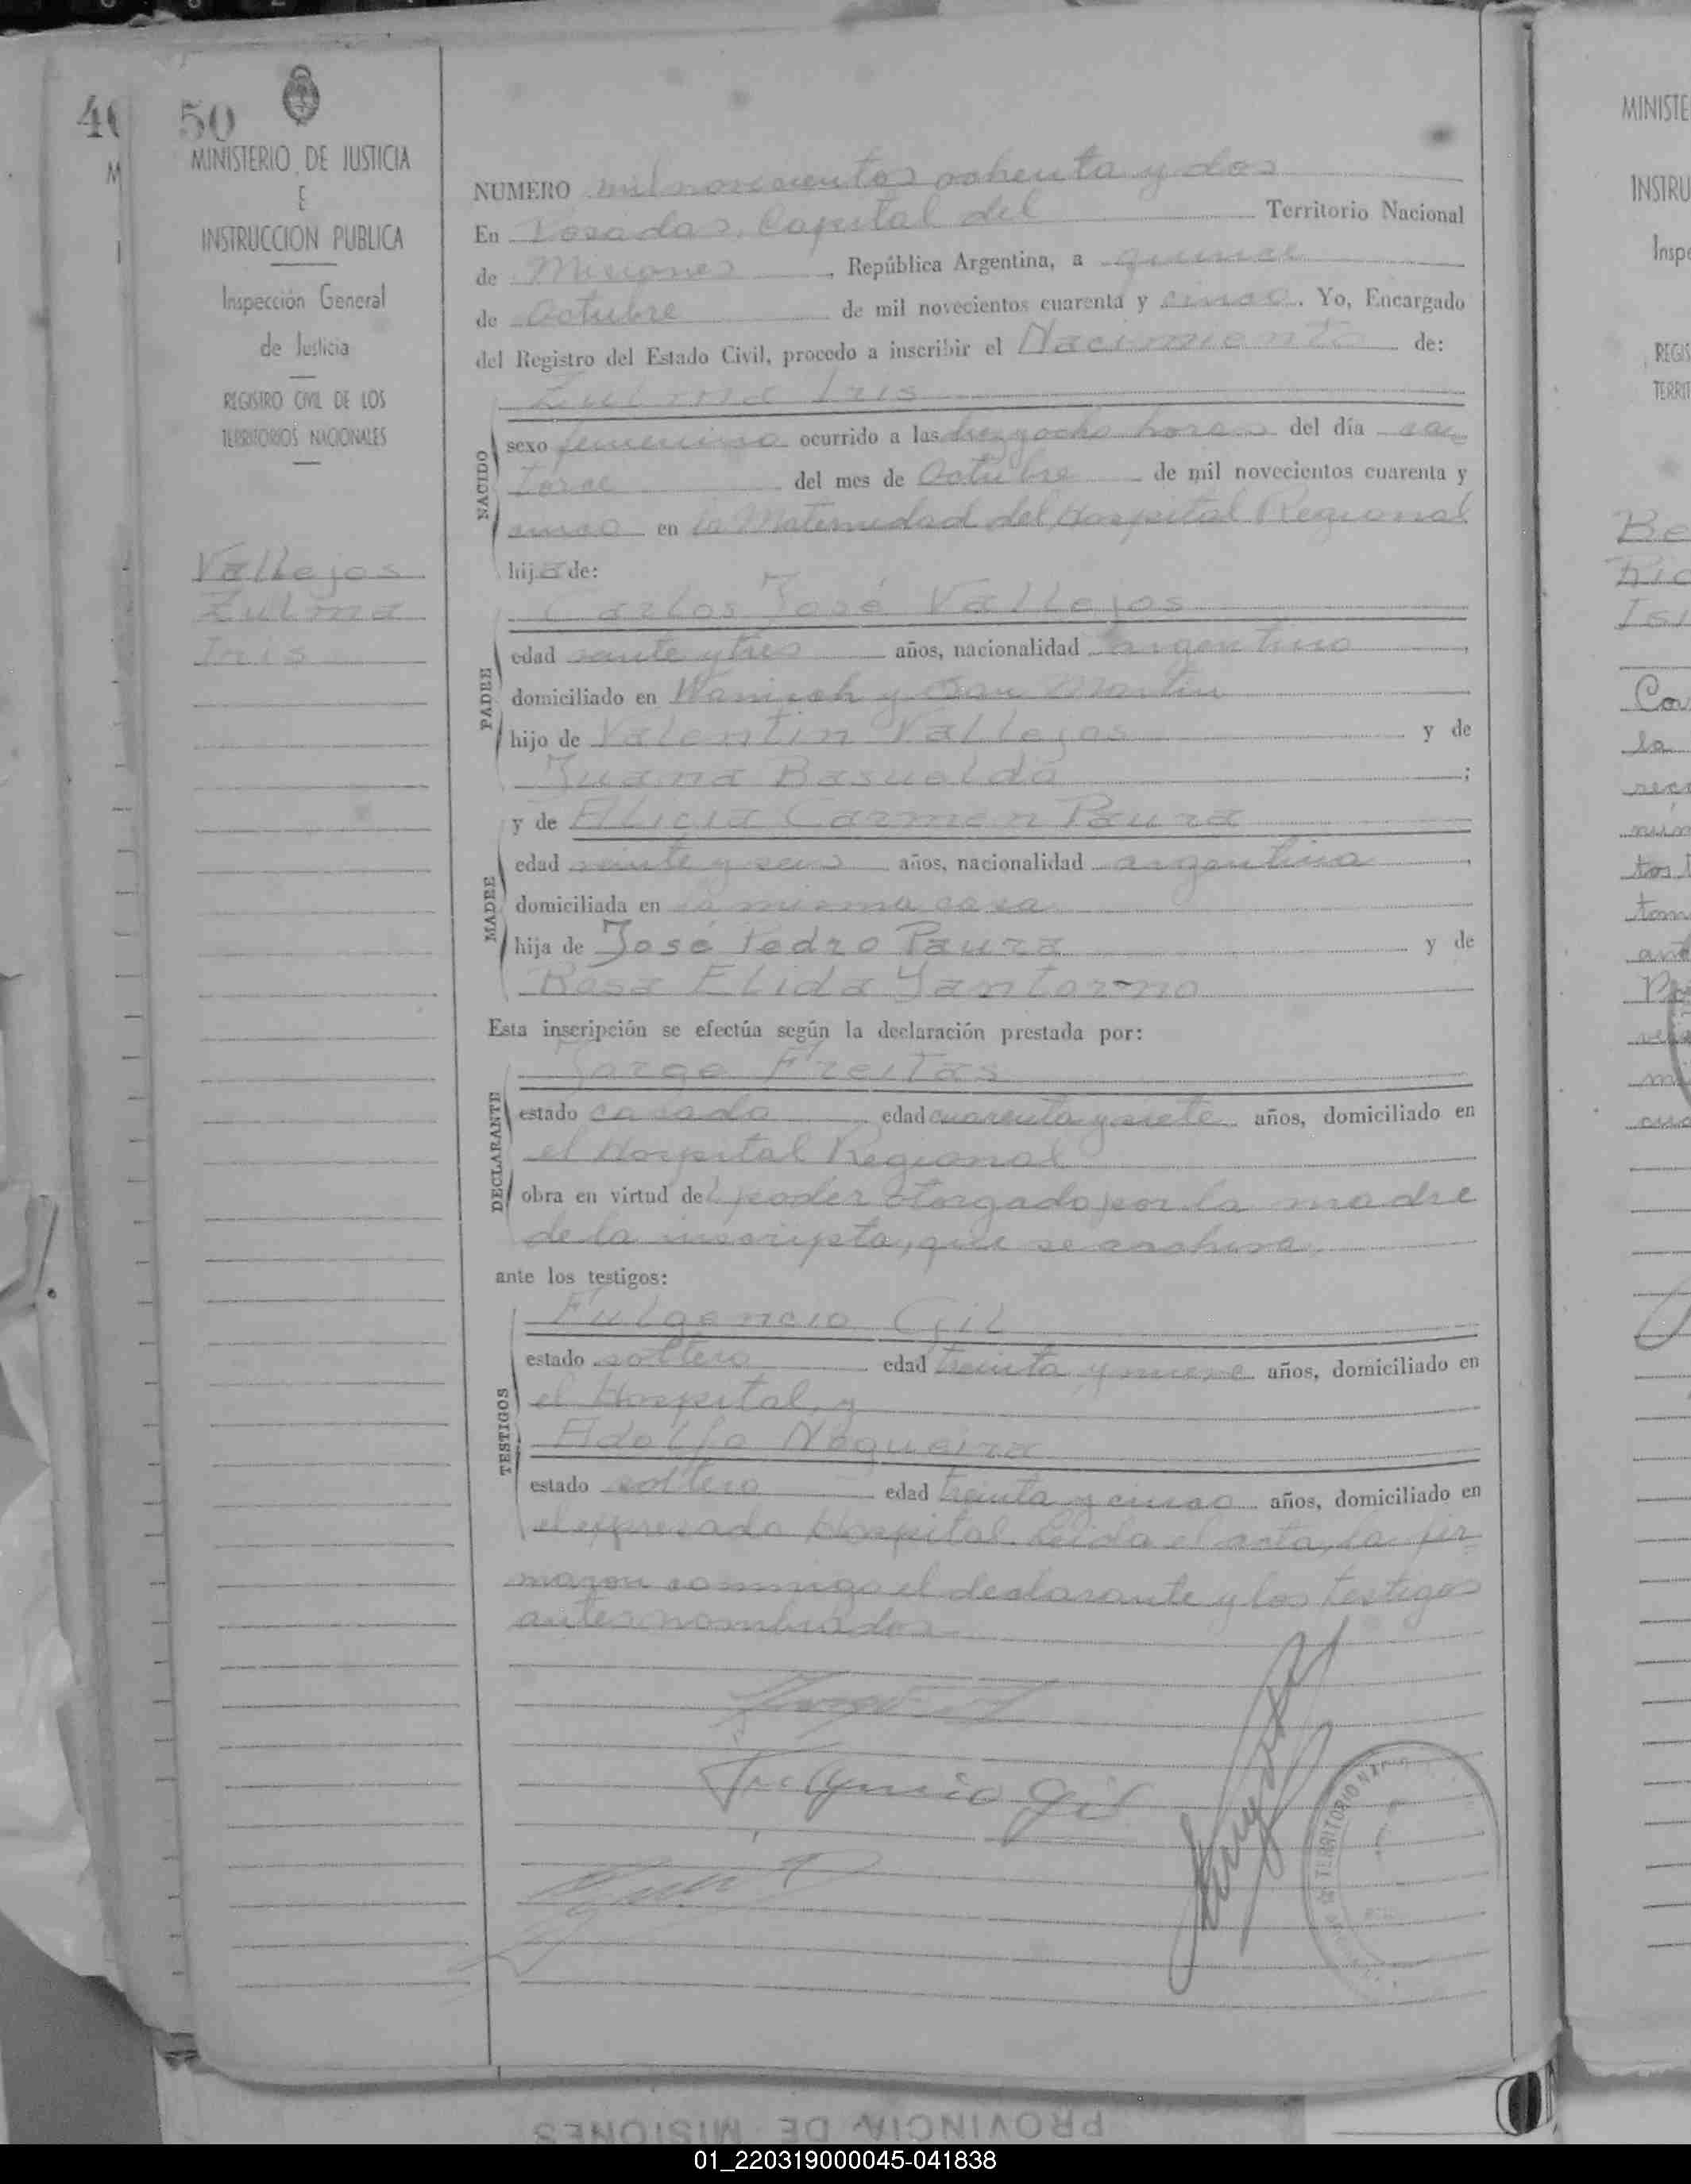 50
MINISTERIO DE JUSTICIA
E
INSTRUCCION PUBLICA
Inspección General
de Justicia
REGISTRO CIVIL DE LOS
TERRITORIOS NACIONALES
Vallejos
Zulma
Iris
NUMERO mil novecientos ochenta y dos
En Posadas, Capital del Territorio Nacional
de Misiones, República Argentina, a quince
de Octubre de mil novecientos cuarenta y cinco. Yo, Encargado
del Registro del Estado Civil, procedo a inscribir el Nacimiento de:
Zulma Iris
NACIDO
sexo femenino ocurrido a las diez y ocho horas del día ca
torce del mes de Octubre de mil novecientos cuarenta y
cinco en la Maternidad del Hospital Regional
hija de:
Carlos José Vallejos
PADRE
edad veinte y tres años, nacionalidad argentino,
domiciliado en y San Martin
hijo de Valentin Vallejos y de
Juana Basualdo;
y de Alicia Carmen Paura
MADRE
edad veinte y seis años, nacionalidad argentina,
domiciliada en la misma casa
hija de José Pedro Paura y de
Rosa Elida Santorno
Esta inscripción se efectúa según la declaración prestada por:
Jorge Freitas
DECLARANTE
estado casado edad cuarenta y siete años, domiciliado en
el Hospital Regional
obra en virtud del poder otorgado por la madre
de la inscripta, que se archiva,
ante los testigos:
Fulgencio Gil
TESTIGOS
estado soltero edad treinta y nueve años, domiciliado en
el Hospital, y
Adolfo Nogueira
estado soltero edad treinta y cinco años, domiciliado en
el expresado Hospital. Leida el acta, la fir
maron conmigo el declarante y los testigos
antes nombrados
Fulgencio Gil
TERRITORIO
PROVINCIA DE MISIONES
01_220319000045-041838